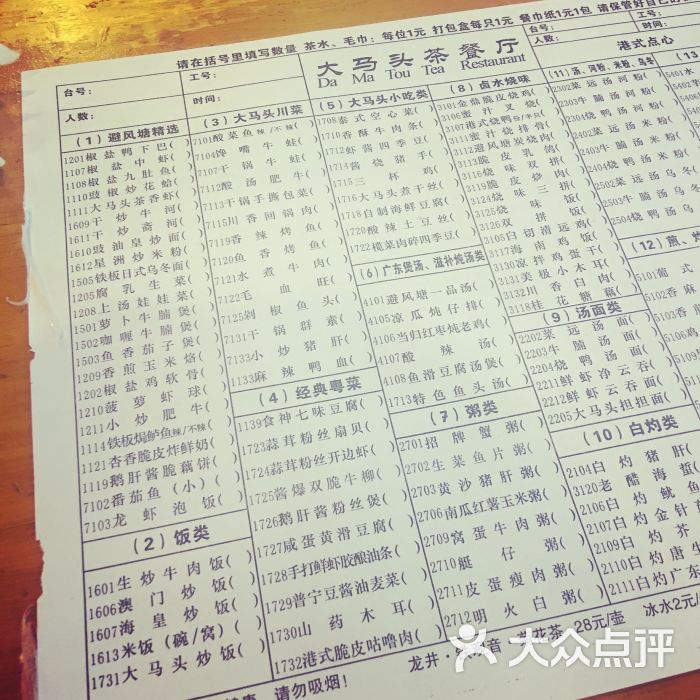 请在括号里填写数量 茶水、毛巾：每位1元 打包盒每只1元 餐巾纸1元1包 请保管好自己的
台号：
工号：
人数：
时间：
大马头茶餐厅
Da Ma Tou Tea Restaurant
台号：
工号：
人数：
时间：
港式点心
(1) 避风塘精选
1201椒盐鸭下巴( )
1107椒盐中虾( )
1108椒盐九肚鱼( )
1110豉椒炒花蛤( )
1111大马头茶香虾( )
1609干炒牛河( )
1611干炒斋河( )
1610豉油皇炒面( )
1612星洲炒米粉( )
1505铁板日式乌冬面( )
1205腐乳生菜( )
1208上汤娃娃菜( )
1501萝卜牛腩煲( )
1502咖喱牛腩煲( )
1503鱼香茄子煲( )
1209香煎玉米烙( )
1202椒盐鸡软骨( )
1210菠萝虾球( )
1211小炒肥牛( )
1114铁板焗鲈鱼辣/不辣( )
1121杏香脆皮炸鲜奶( )
1119鹅肝酱脆藕饼( )
7102番茄鱼(小)( )
7103龙虾泡饭( )
(2) 饭类
1601生炒牛肉饭( )
1606澳门炒饭( )
1607海皇炒饭( )
1613米饭(碗/窝)( )
1731大马头炒饭( )
(3) 大马头川菜
7101酸菜鱼辣/不辣( )
7104馋嘴牛蛙( )
7107干锅牛蛙( )
7112酸汤肥牛( )
7113干锅手撕包菜( )
7115川香回锅肉( )
7119香辣烤鱼( )
7120鱼香烤鱼( )
7121水煮牛肉( )
7122毛血旺( )
7125剁椒鱼头( )
7131干锅群素( )
7133小炒猪肝( )
1133麻辣鸭血( )
(4) 经典粤菜
1139食神七味豆腐( )
1723蒜茸粉丝扇贝( )
1724蒜茸粉丝开边虾( )
1725酱爆双脆牛柳( )
1726鹅肝酱粉丝煲( )
1727咸蛋黄滑豆腐( )
1728手打鲜虾胶酿油条( )
1729普宁豆酱油麦菜( )
1730山药木耳( )
1732港式脆皮咕噜肉( )
(5) 大马头小吃类
1708泰式空心菜( )
1710香酥牛肉条( )
1712虾酱四季豆( )
1714酱烧猪手( )
1715三杯鸡( )
1716大马头煮干丝( )
1718自制海鲜豆腐( )
1720酸辣土豆丝( )
1722榄菜肉碎四季豆( )
(6) 广东煲汤、滋补炖汤类
4101避风塘一品汤( )
4105凉瓜炖仔排( )
4106当归红枣炖老鸡( )
4107酸辣汤( )
4108鱼滑豆腐汤煲( )
1713特色鱼头汤( )
(7) 粥类
2701招牌蟹粥( )
2702生菜鱼片粥( )
2703黄沙猪肝粥( )
2706南瓜红薯玉米粥( )
2709窝蛋牛肉粥( )
2710艇仔粥( )
2711皮蛋瘦肉粥( )
2712明火白粥( )
(8) 卤水烧味
3101金鼎脆皮烧鸡( )
3106蜜汁叉烧( )
3111蜜汁烧排骨( )
3112避风塘炭烧肉( )
3113脆皮乳鸽( )
3116烧味双拼( )
3124烧味三拼( )
3125烧味饭( )
3126双拼饭( )
3105白切清远鸡( )
3117海南鸡饭( )
3130凉拌鸡蛋干( )
3131美极小木耳( )
3132川香白肉( )
3118桂花糖藕( )
(9) 汤面类
2202菜远汤面( )
2203牛腩汤面( )
2204烧鸭汤面( )
2211鲜虾净云吞( )
2212鲜虾云吞面( )
2205大马头担担面( )
(10) 白灼类
2104白灼猪肝(
3120老醋海蜇
2101白灼鱿鱼
2107白灼金针
2109白灼芥
2110白灼唐生
2111白灼广东
(11) 汤、河粉、米粉、乌冬
2302菜远汤河粉(
2303牛腩汤河粉(
2402菜远汤米粉(
2403牛腩汤米粉(
2404烧鸭汤米粉(
2502菜远汤乌冬(
2503牛腩汤乌冬(
2504烧鸭汤乌
(12) 煎、炸
(13)
龙井·
花茶-28元/壶 冰水2元/
请勿吸烟！
大众点评